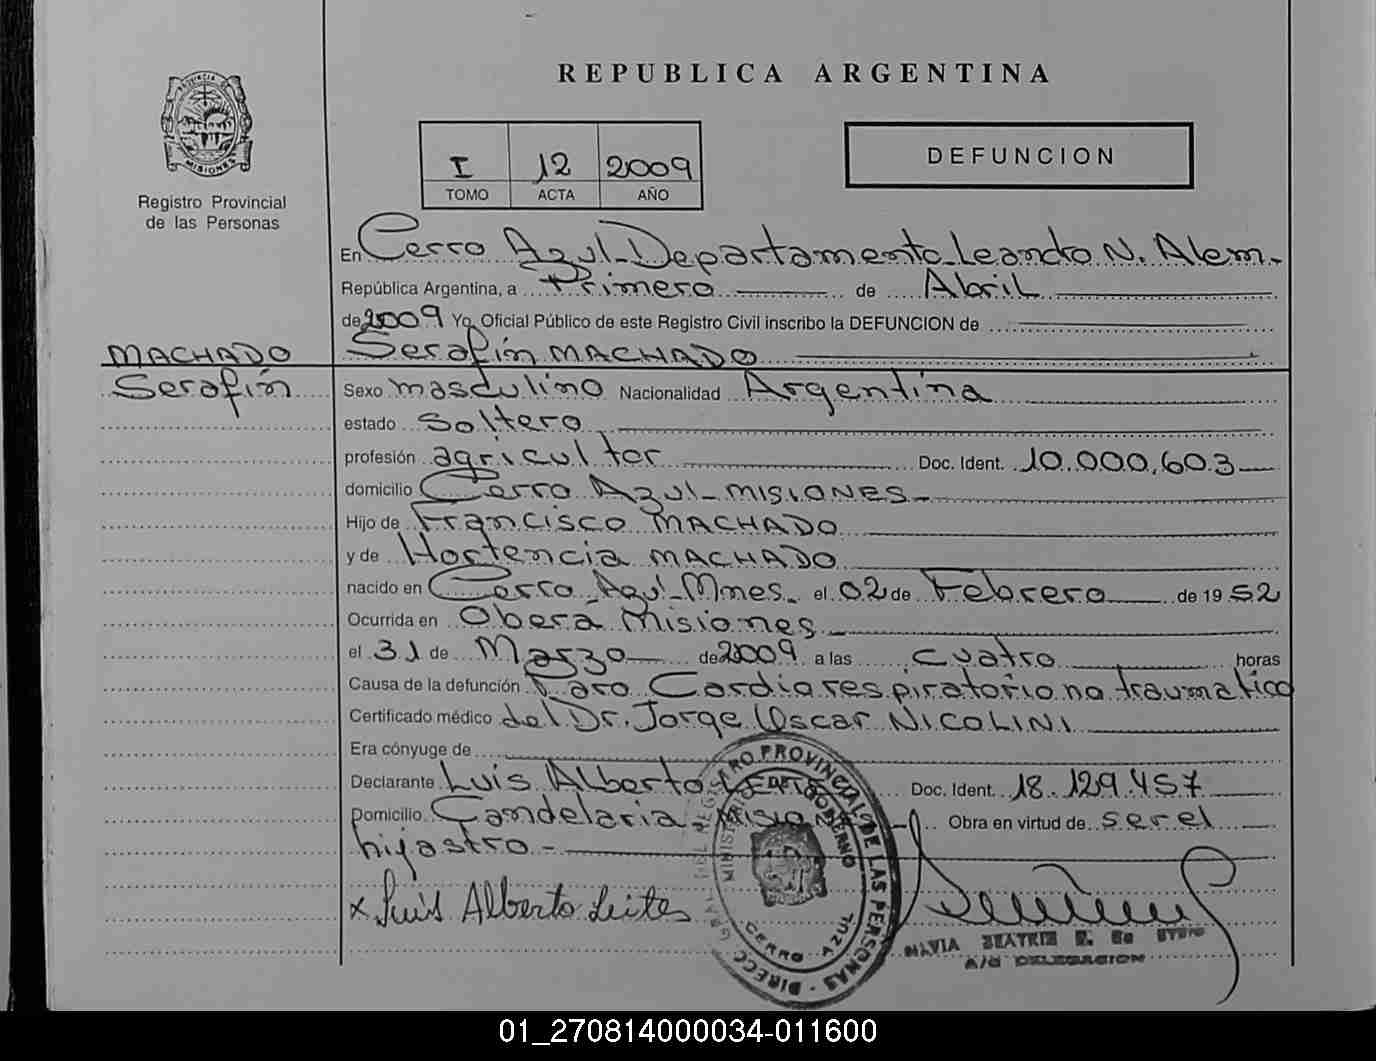 REPUBLICA ARGENTINA
PROVINCIA DE
MISIONES
Registro Provincial
de las Personas
I 12 2009
TOMO ACTA AÑO
DEFUNCION
En Cerro Azul-Departamento Leandro N. Alem-
República Argentina, a Primero de Abril
de 2009 Yo, Oficial Público de este Registro Civil inscribo la DEFUNCION de
MACHADO Serafín MACHADO
Serafín Sexo masculino Nacionalidad Argentina
estado Soltero
profesión agricultor Doc. Ident. 10.000.603
domicilio Cerro Azul-MISIONES-
Hijo de Francisco MACHADO
y de Hortencia MACHADO
nacido en Cerro Azul-Mnes- el 02 de Febrero de 1952
Ocurrida en Oberá Misiones
el 31 de Marzo de 2009 a las cuatro horas
Causa de la defunción Paro Cardio respiratorio no traumatico
Certificado médico del Dr. Jorge Oscar NICOLINI
Era cónyuge de
Declarante Luis Alberto Doc. Ident. 18.129.457
Domicilio Candelaria Obra en virtud de ser el
hijastro-
x Luis Alberto Leites
REGISTRO PROVINCIAL DE LAS PERSONAS - DIRECC GRAL DEL
MINISTERIO DE GOBIERNO
CERRO AZUL
BEATRIZ
A/C DELEGACION
01_270814000034-011600